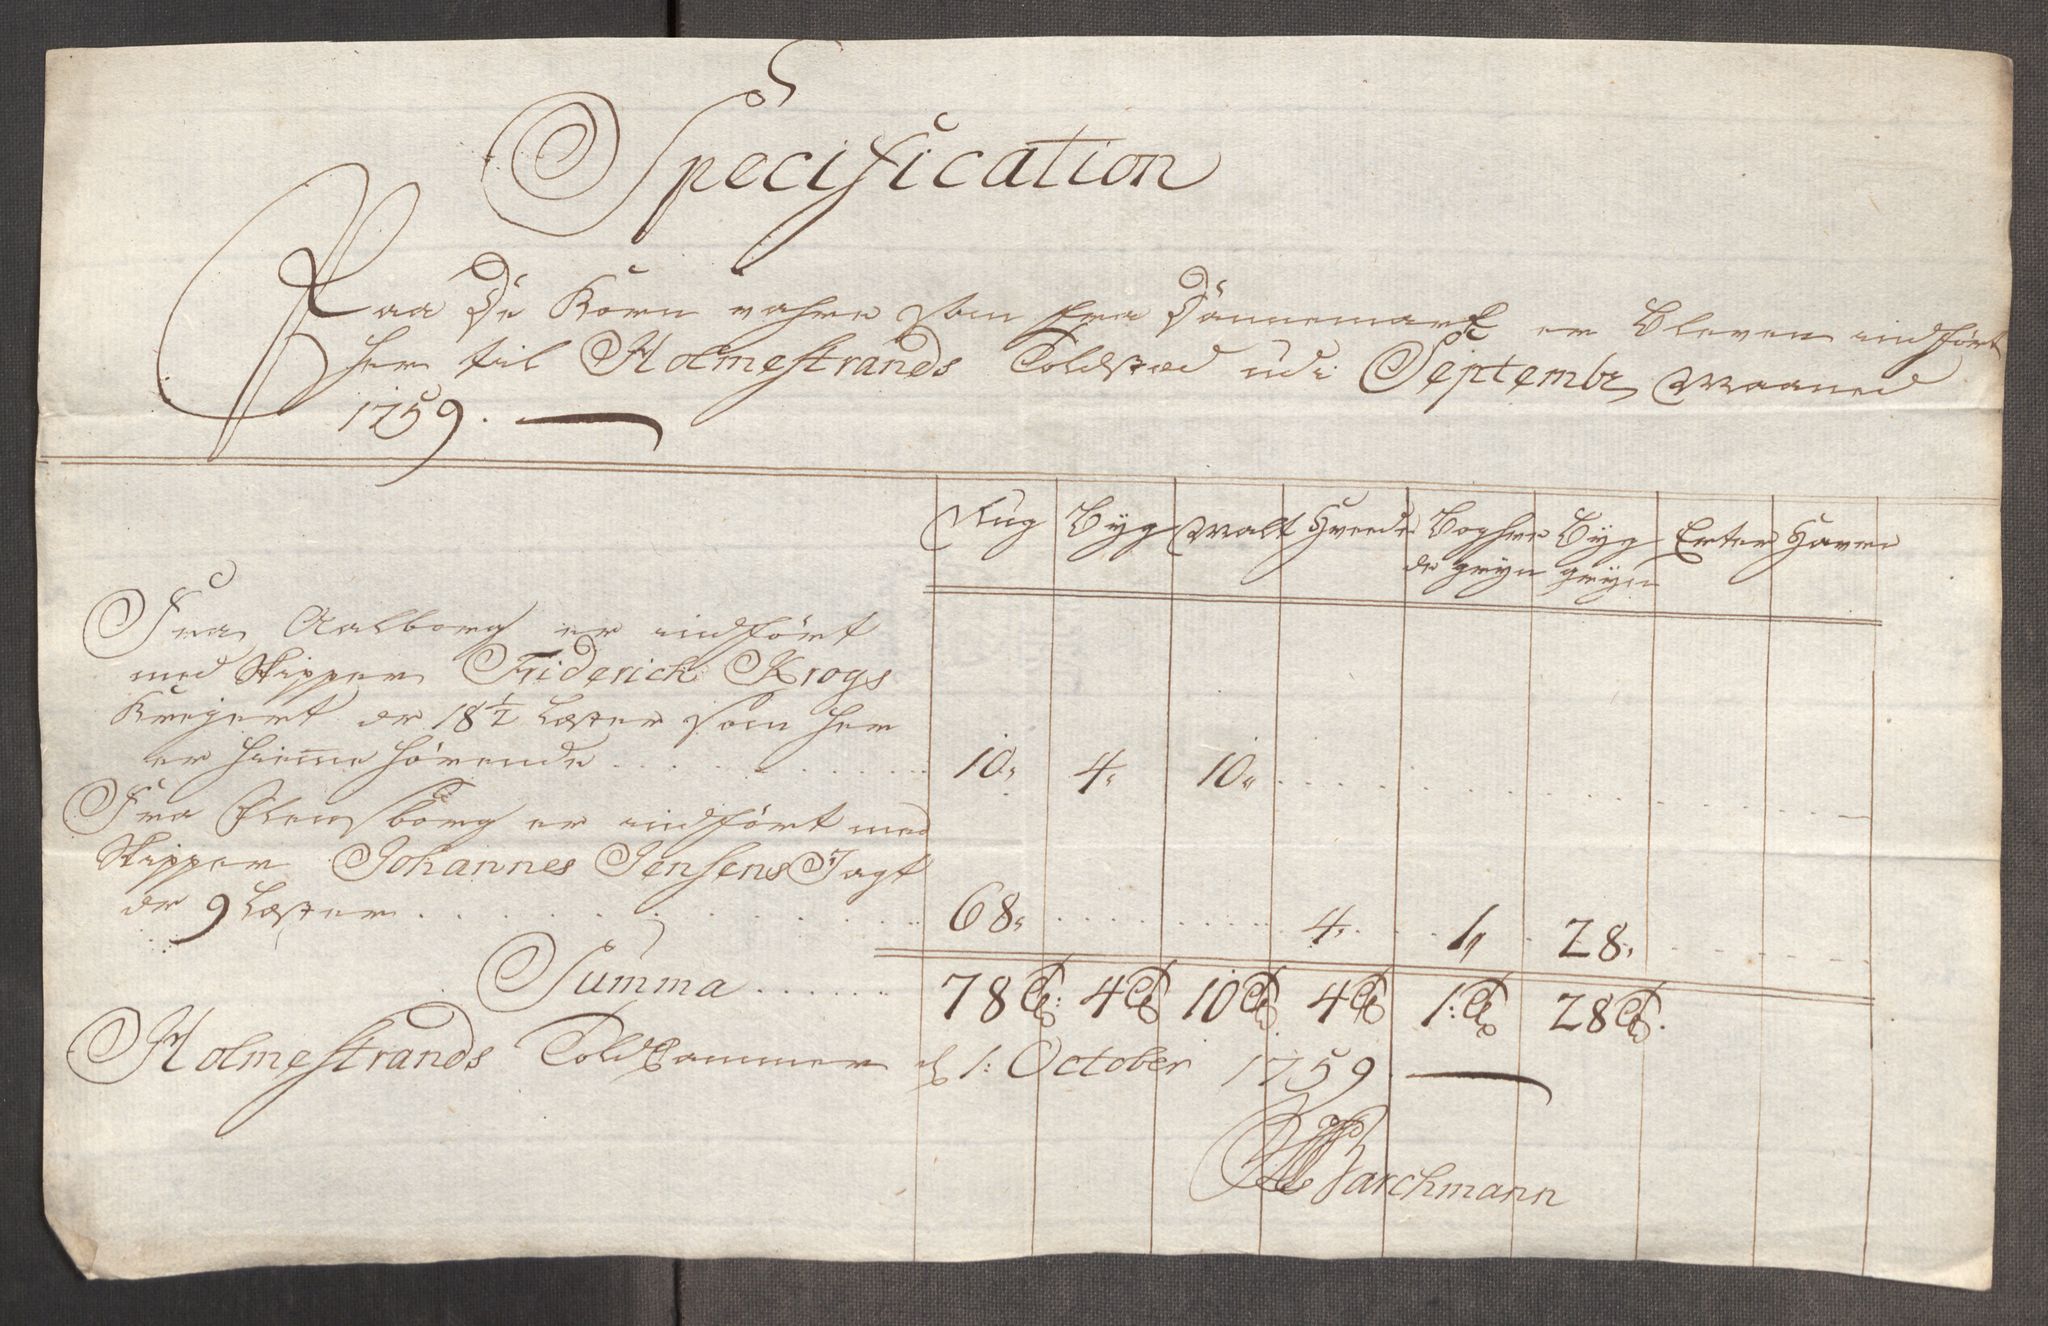 Specification
Paa De Korn vahre som fra Dannemark er bleven indført
her til Holmestrands Toldsted udi Septembr Maaned
1759.
Rug Byg Malt Hvede Boghve Byg Erter Havre
de gryn gryn
Fra Aalborg er indført
med Skipper Friderich Krogs
Krejert dr 18 1/2 Læster som her
er hieme hørende . . . . . . . . . 10, 4, 10,,
Fra Flensborg er indført med
Skipper Johannes Jensens Jagt
dr 9 Læster . . . . . . . . . 68, 4, 1,, 28,
Summa . . . . . . 78 Tr: 4 Tr 10 Tr 4 Tr 1: Tr 28 Tr.
Holmestrands Toldkammer d 1: October 1759.
Barchmann